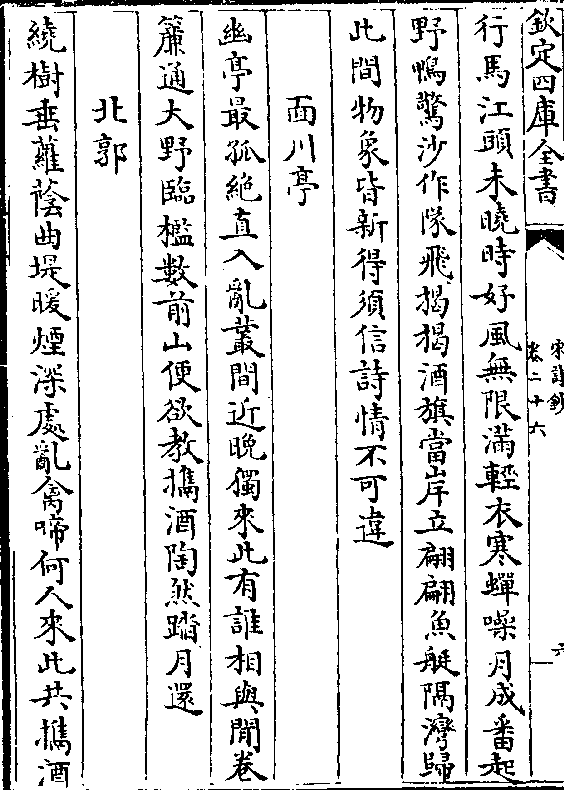 欽定四庫全書
宋詩鈔
卷二十六
行馬江頭未曉時好風無限滿輕衣寒蟬噪月成番起
野鴨驚沙作隊飛掲掲酒旗當岸立翩翩魚艇隔灣歸
此間物象皆新得須信詩情不可違
面川亭
幽亭最孤絶直入亂叢間近晩獨來此有誰相與閒卷
簾通大野臨檻數前山便欲教攜酒陶然踏月還
北郭
繞樹垂蘿蔭曲堤暖煙深處亂禽啼何人來此共攜酒